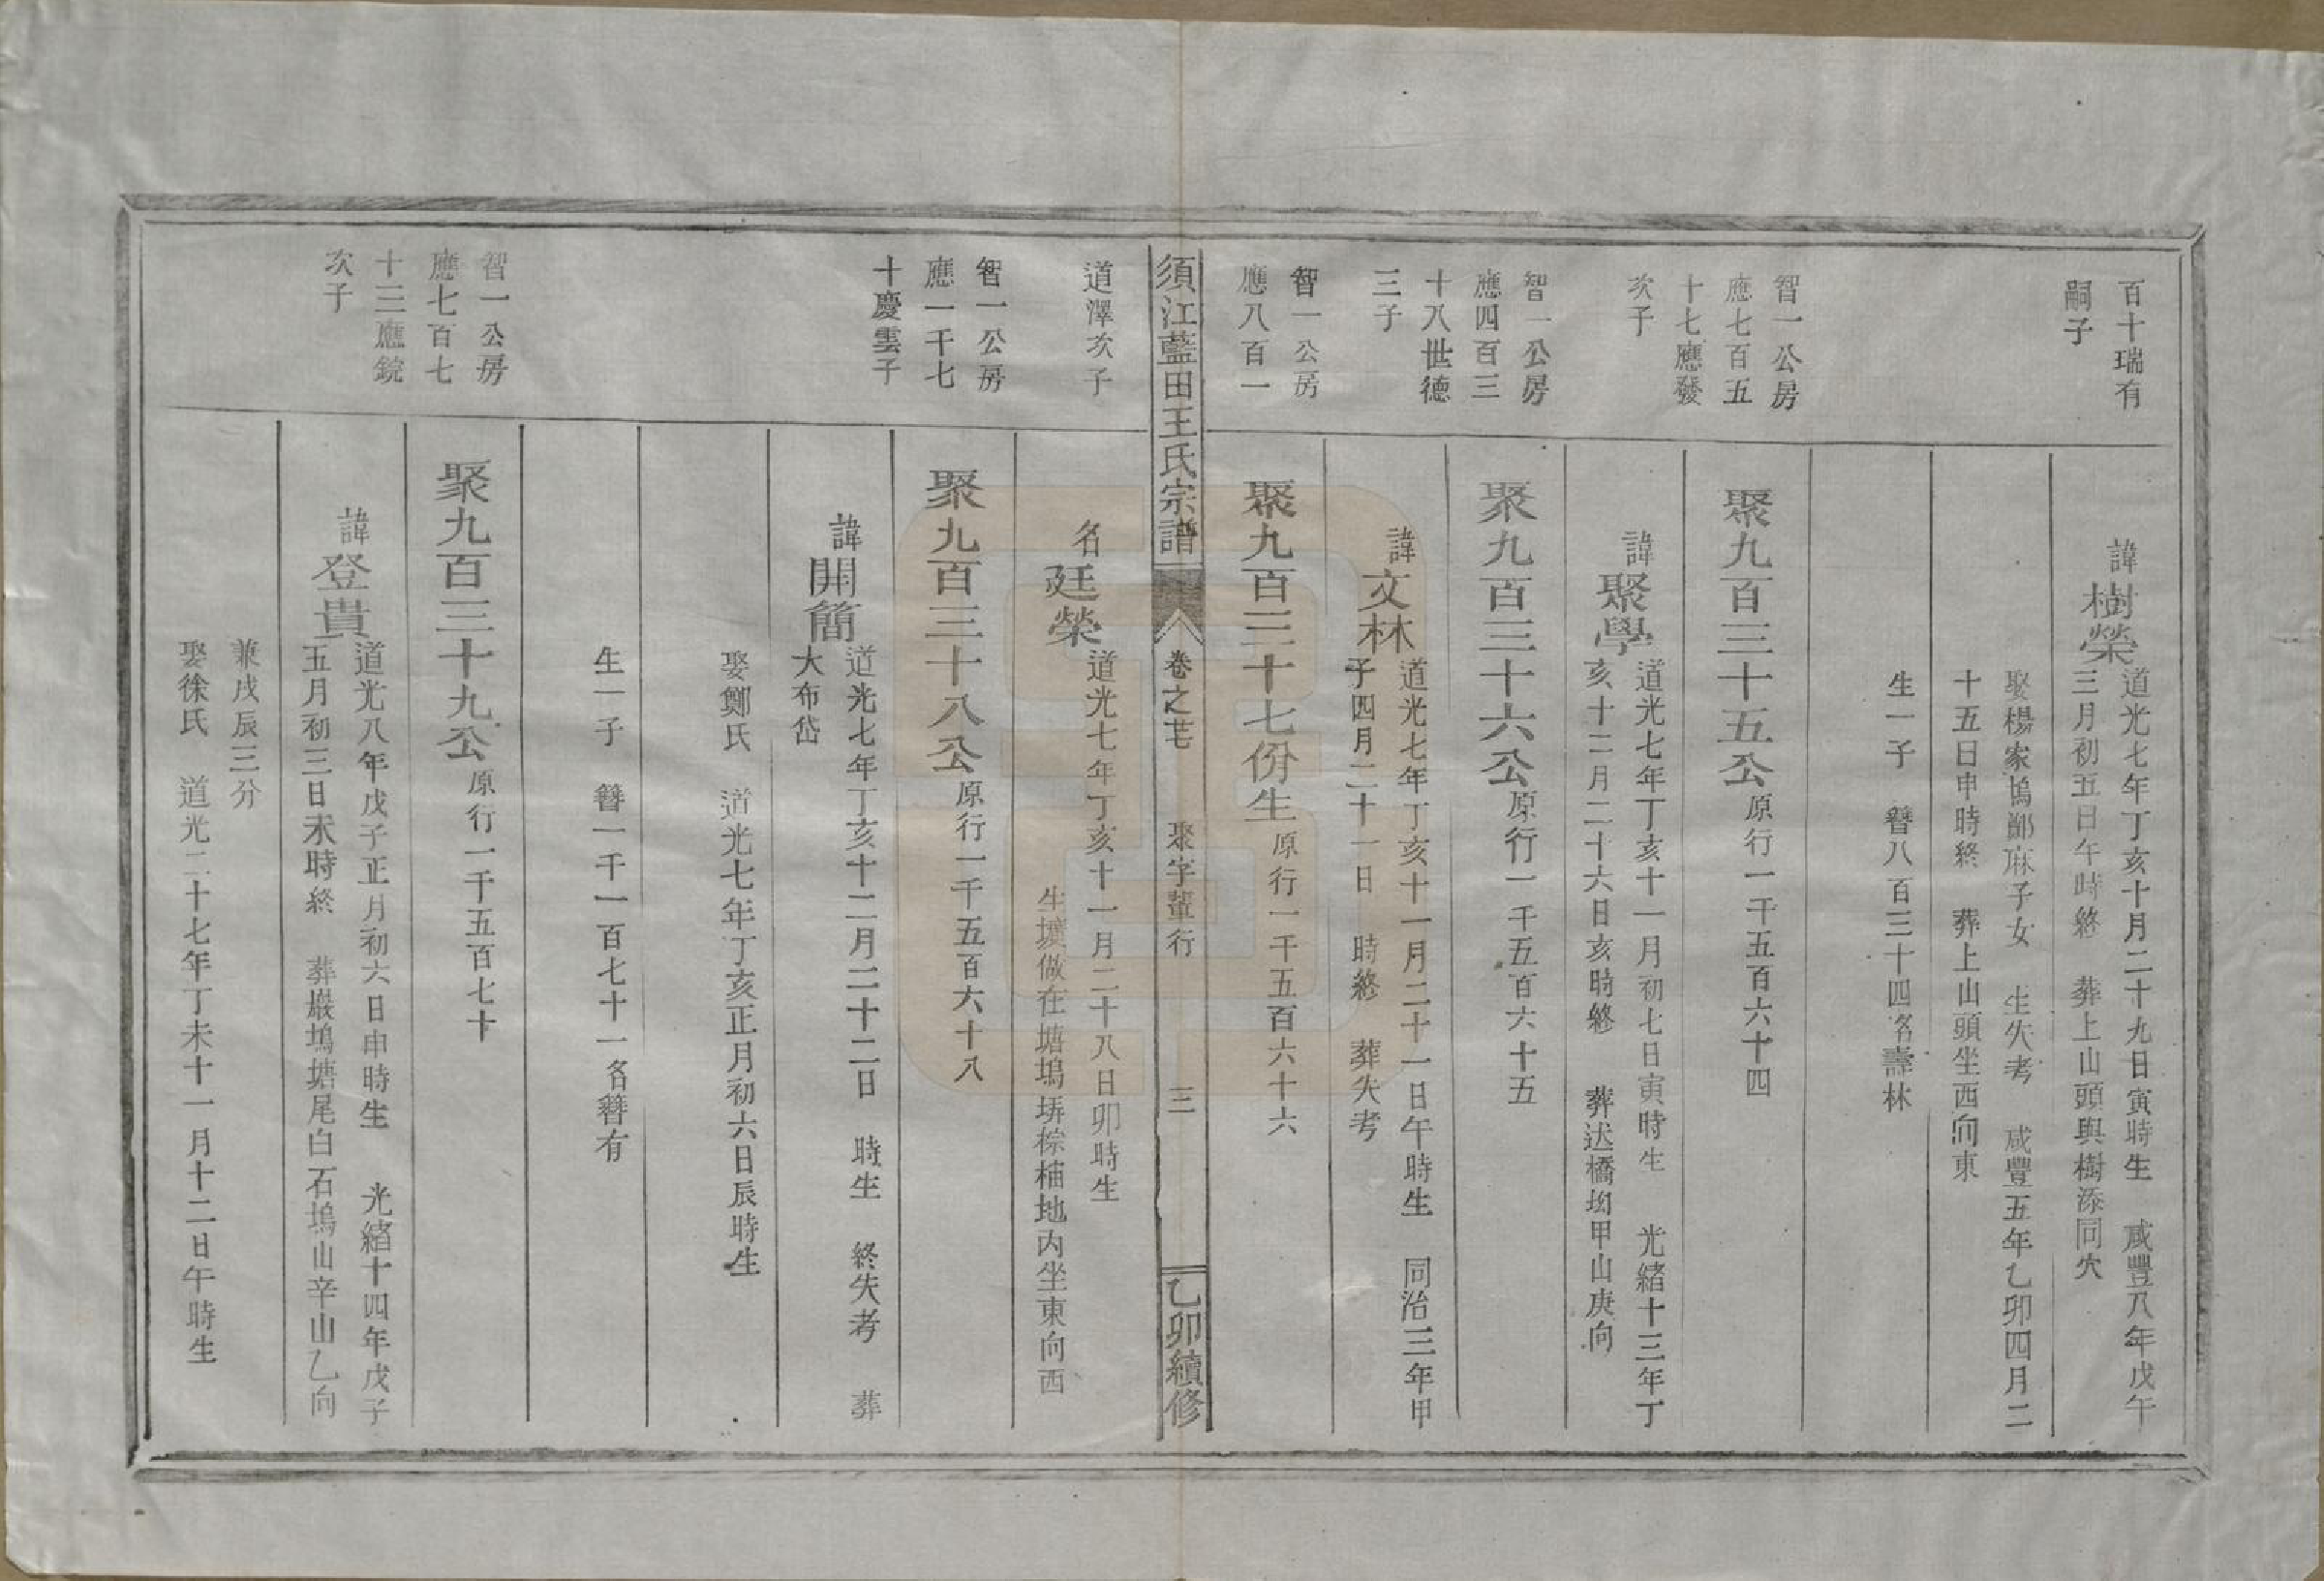 百十瑞有
嗣子
諱樹榮
道光七年丁亥十月二十九日寅時生 咸豐八年戊午
三月初五日午時終 葬上山頭與樹添同穴
娶楊家塢鄭麻子女 生失考 咸豐五年乙卯四月二
十五日申時終 葬上山頭坐西向東
生一子 簪八百三十四名壽林
智一公房
應七百五
十七應發
次子
聚九百三十五公 原行一千五百六十四
諱聚學
道光七年丁亥十一月初七日寅時生 光緒十三年丁
亥十二月二十六日亥時終 葬 橋坳甲山庚向
智一公房
應四百三
十八世德
三子
聚九百三十六公 原行一千五百六十五
諱文林
道光七年丁亥十一月二十一日午時生 同治三年甲
子四月二十一日 時終 葬失考
智一公房
應八百一
聚九百三十七份生 原行一千五百六十六
須江藍田王氏宗譜
卷之芼
聚字輩行
三
乙卯續修
道澤次子
名廷榮
道光七年丁亥十一月二十八日卯時生
生壙做在塘塢塝棕楠地內坐東向西
智一公房
應一千七
十慶雲子
聚九百三十八公 原行一千五百六十八
諱開簡
道光七年丁亥十二月二十二日 時生 終失考 葬
大布岱
娶鄭氏 道光七年丁亥正月初六日辰時生
生一子 簪一千一百七十一名簪有
智一公房
應七百七
十三應鏡
次子
聚九百三十九公 原行一千五百七十
諱登貴
道光八年戊子正月初六日申時生 光緒十四年戊子
五月初三日未時終 葬巖塢塘尾白石塢山辛山乙向
兼戌辰三分
娶徐氏 道光二十七年丁未十一月十二日午時生